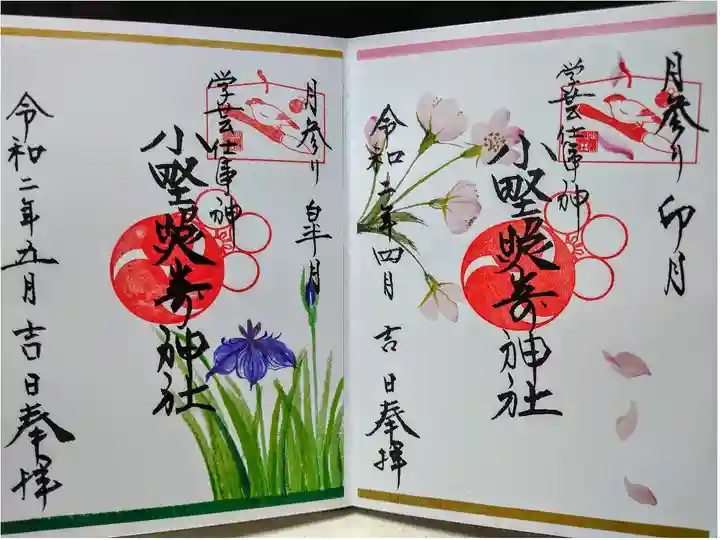 月参り 卯月
学芸仕事神
小野照崎神社
令和二年四月 吉日奉拝
月参り 皐月
学芸仕事神
小野照崎神社
令和二年五月 吉日奉拝